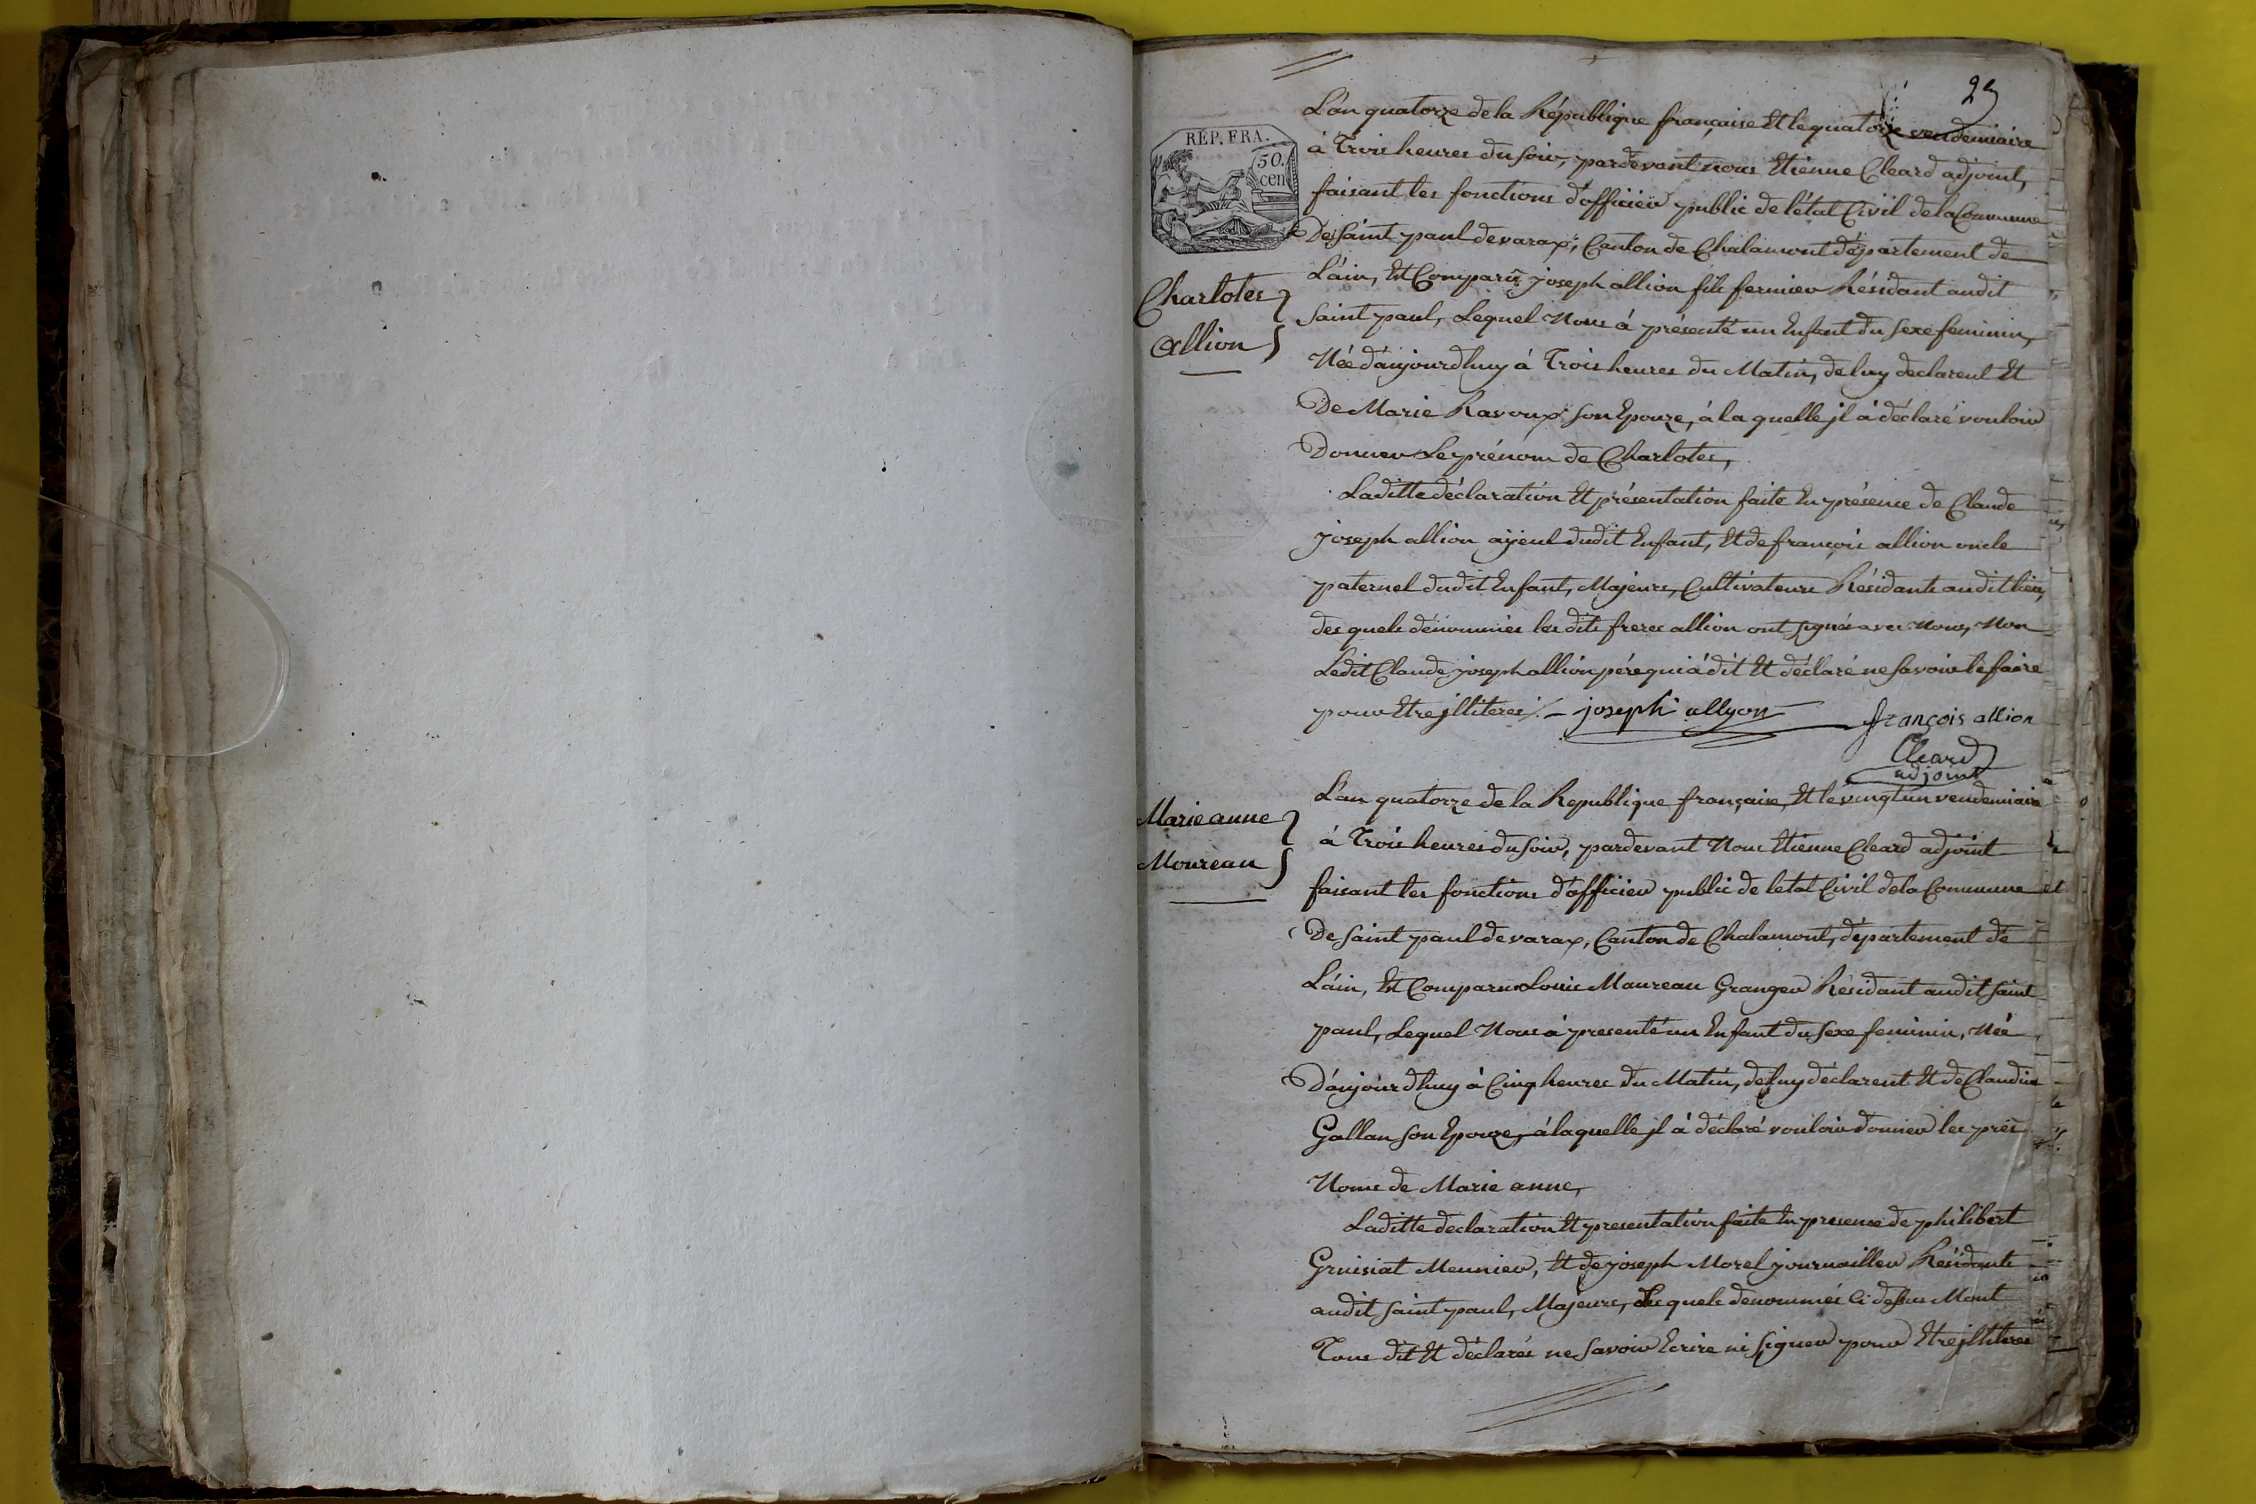 29
REP. FRA.
50.
cen
L'an quatorze de la République française Et le quatorze vendemiaire
à Trois heures du soir, pardevant nous Etienne Cleard adjoint,
faisant les fonctions d'officier public de l'état Civil de la Commune
De Saint paul de varax, Canton de Chalamont département de
L'ain, Et Comparu joseph allion fils fermier Résidant audit
Saint paul, Lequel Nous à présenté un Enfant du sexe feminin,
Née d'aujourdhuy à Trois heures du Matin, de luy declarent Et
De Marie Ravoux son Epouze, à la quelle jl à déclaré vouloir
Donner Le prénom de Charlotes,
Charlotes
Allion
Laditte déclaration Et présentation faite En présence de Claude
joseph allion ayeul dudit Enfant, Et de françois allion oncle
paternel dudit Enfant, Majeurs, Cultivateurs Résidants audit lieu,
des quels dénommés les dits freres allion ont signés avec Nous, Non
Ledit Claude joseph allion pére qui à dit Et déclaré ne savoir le faire
pour Etre jlliteres /. joseph allyon
françois allion
Cleard
adjoint
Marie anne
Moureau
L'an quatorze de la Republique française, Et le vingt un vendemiaire
à Trois heures du soir, pardevant Nous Etienne Cleard adjoint
faisant les fonctions d'officier public de letat Civil de la Commune
De Saint paul de varax, Canton de Chalamont, département de
L'ain, Et Comparu Louis Maureau Granger Résidant audit Saint
paul, Lequel Nous à presenté un Enfant du sexe feminin, Née
D'aujourdhuy à Cinq heures du Matin, de luy déclarent Et de Claudine
Gallan son Epouze, à laquelle jl à déclaré vouloir donner les pré
Noms de Marie anne,
Laditte declaration Et presentation faite En presence de philibert
Gruisiat Meunier, Et de joseph Morel journaillier Résidants
audit saint paul, Majeurs, des quels denommés Ci dessus M'ont
Tous dit Et déclarés ne savoir Ecrire ni signer pour Etre jlliteres